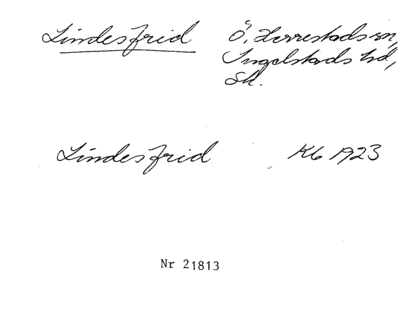 Lindesfrid Ö. Herrestads sn,
Ingelstads hd,
Sk.
Lindesfrid Kb 1923
Nr 21813